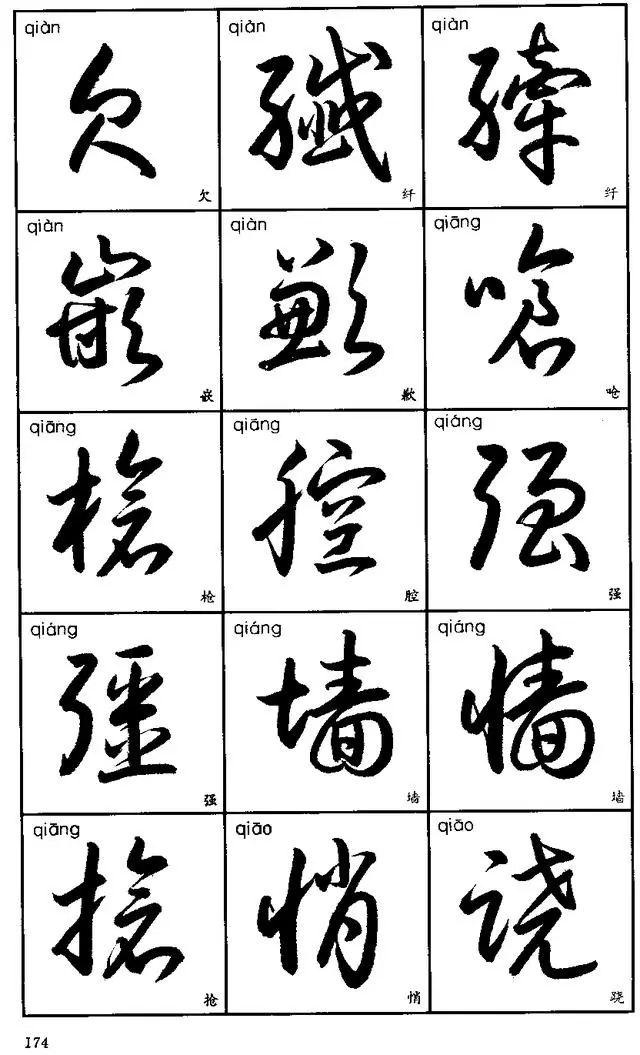 qiàn qiàn qiàn
欠 纖 縴
欠 纤 纤
qiàn qiàn qiāng
嵌 歉 嗆
嵌 歉 呛
qiāng qiāng qiáng
槍 腔 强
枪 腔 强
qiáng qiáng qiáng
彊 墙 牆
强 墙 墙
qiāng qiāo qiāo
搶 悄 跷
抢 悄 跷
174